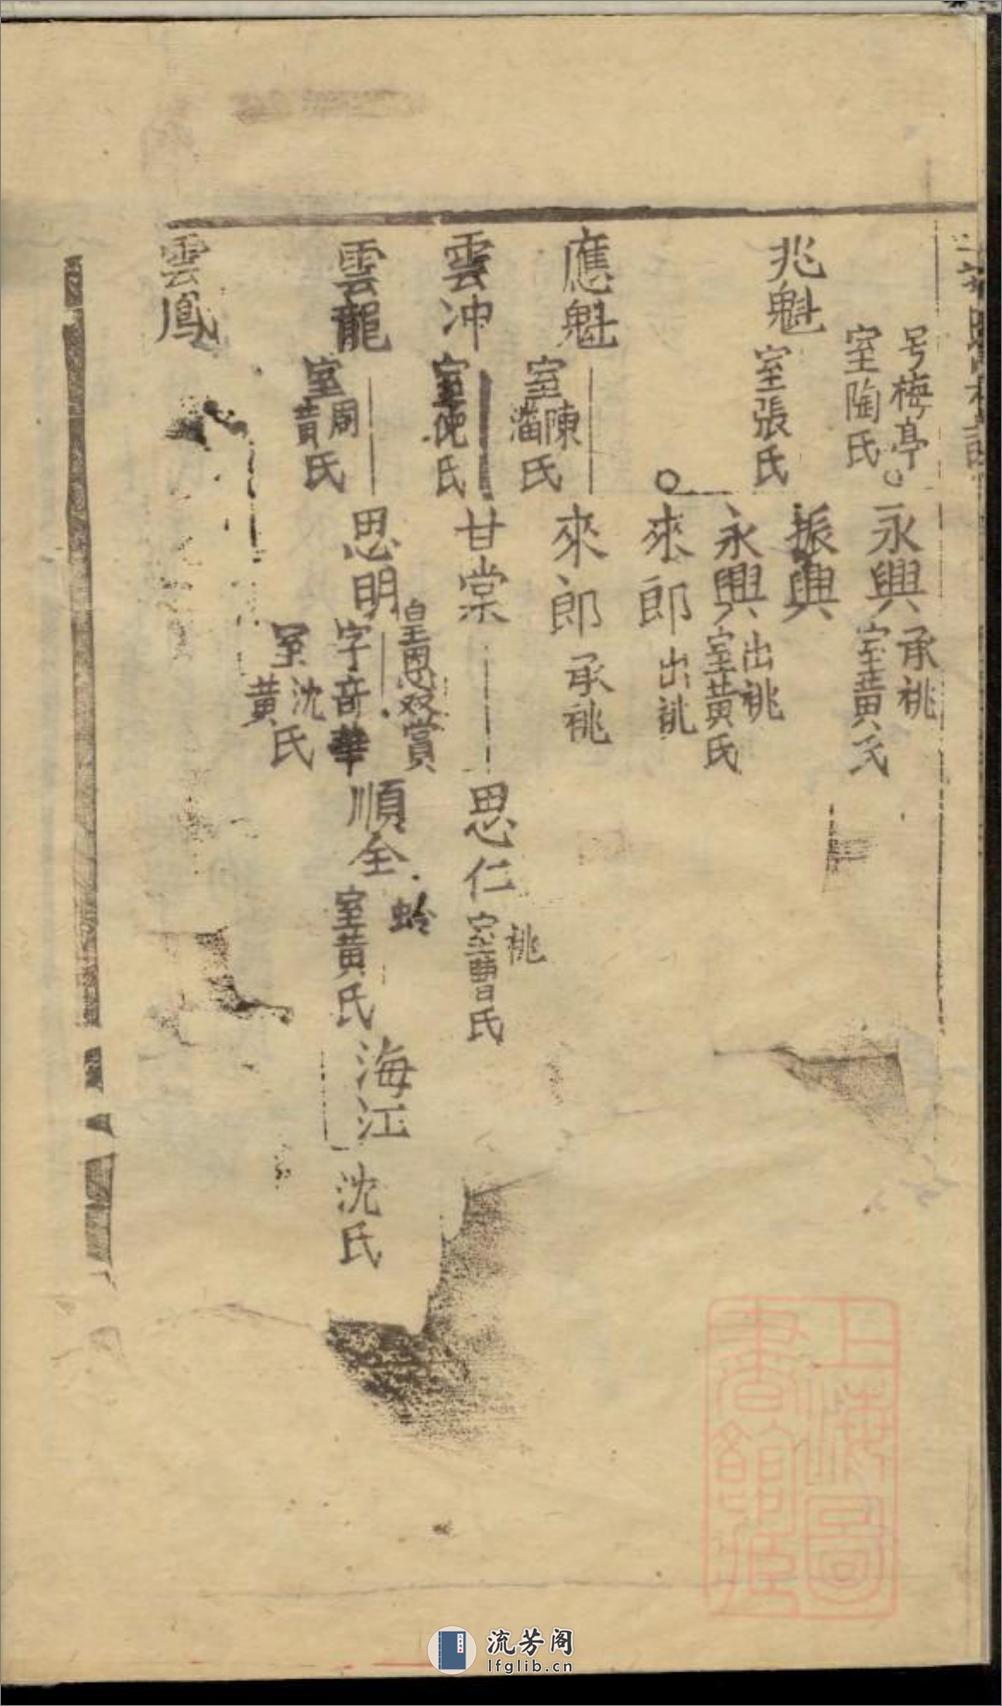 号梅亭
室陶氏
永興
承祧
室黃氏
兆魁
室張氏
振興
永興
出祧
室黃氏
來郎
出祧
應魁
室陳潘氏
來郎
承祧
雲冲
甘棠
思仁
祧
室曹氏
雲龍
室周黃氏
思明
皇恩双賞
字音華
室沈黃氏
順全
蛉
室黃氏
海江
沈氏
雲鳳
上海圖
書館藏
流芳阁
lfglib.cn